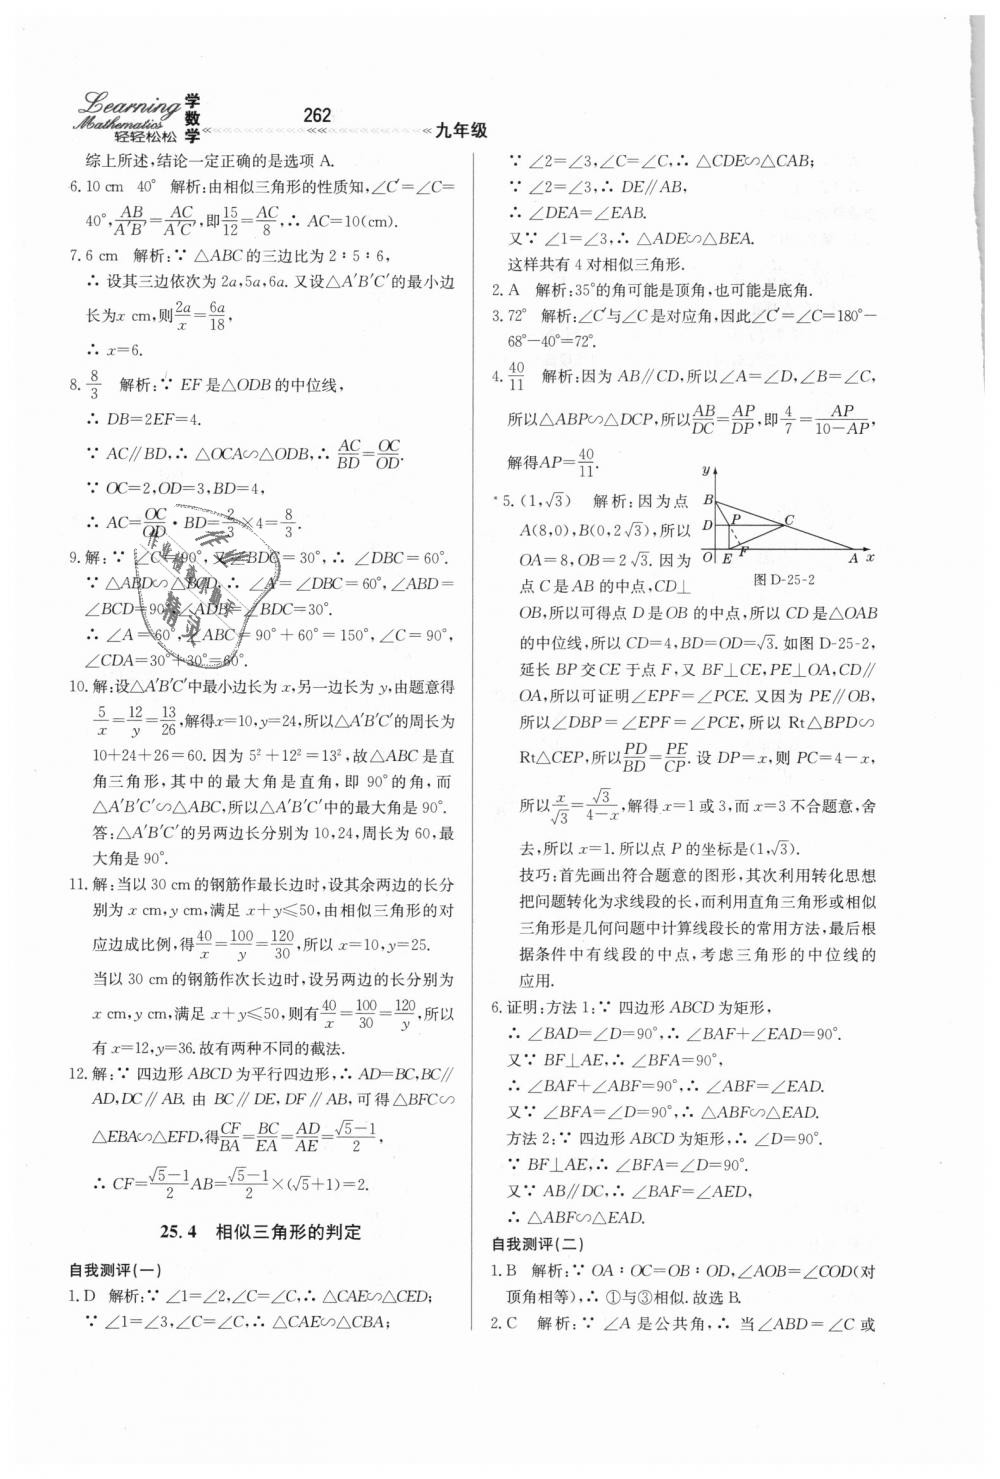 Learning
Mathematics
轻轻松松
学数学
262
九年级
综上所述,结论一定正确的是选项 A.
6. 10 cm 40° 解析:由相似三角形的性质知,∠C′=∠C=
40°,AB/A′B′=AC/A′C′,即15/12=AC/8,∴ AC=10(cm).
7. 6 cm 解析:∵ △ABC 的三边比为 2∶5∶6,
∴ 设其三边依次为 2a,5a,6a. 又设△A′B′C′的最小边
长为x cm,则2a/x=6a/18,
∴ x=6.
8. 8/3 解析:∵ EF 是△ODB 的中位线,
∴ DB=2EF=4.
∵ AC∥BD,∴ △OCA∽△ODB,∴ AC/BD=OC/OD.
∵ OC=2,OD=3,BD=4,
∴ AC=OC/OD·BD=2/3×4=8/3.
9. 解:∵ ∠C=90°,又∠BDC=30°,∴ ∠DBC=60°.
∵ △ABD∽△BCD,∴ ∠A=∠DBC=60°,∠ABD=
∠BCD=90°,∠ADB=∠BDC=30°.
∴ ∠A=60°,∠ABC=90°+60°=150°,∠C=90°,
∠CDA=30°+30°=60°.
10. 解:设△A′B′C′中最小边长为 x,另一边长为 y,由题意得
5/x=12/y=13/26,解得x=10,y=24,所以△A′B′C′的周长为
10+24+26=60. 因为 5²+12²=13²,故△ABC 是直
角三角形,其中的最大角是直角,即 90°的角,而
△A′B′C′∽△ABC,所以△A′B′C′中的最大角是 90°.
答:△A′B′C′的另两边长分别为 10,24,周长为 60,最
大角是 90°.
11. 解:当以 30 cm 的钢筋作最长边时,设其余两边的长分
别为 x cm,y cm,满足 x+y≤50,由相似三角形的对
应边成比例,得40/x=100/y=120/30,所以 x=10,y=25.
当以 30 cm 的钢筋作次长边时,设另两边的长分别为
x cm,y cm,满足 x+y≤50,则有40/x=100/30=120/y,所以
有 x=12,y=36. 故有两种不同的截法.
12. 解:∵ 四边形 ABCD 为平行四边形,∴ AD=BC,BC∥
AD,DC∥AB. 由 BC∥DE,DF∥AB,可得△BFC∽
△EBA∽△EFD,得CF/BA=BC/EA=AD/AE=(√5-1)/2,
∴ CF=(√5-1)/2 AB=(√5-1)/2×(√5+1)=2.
25.4 相似三角形的判定
自我测评(一)
1. D 解析:∵ ∠1=∠2,∠C=∠C,∴ △CAE∽△CED;
∵ ∠1=∠3,∠C=∠C,∴ △CAE∽△CBA;
∵ ∠2=∠3,∠C=∠C,∴ △CDE∽△CAB;
∵ ∠2=∠3,∴ DE∥AB,
∴ ∠DEA=∠EAB.
又∵ ∠1=∠3,∴ △ADE∽△BEA.
这样共有 4 对相似三角形.
2. A 解析:35°的角可能是顶角,也可能是底角.
3. 72° 解析:∠C′与∠C 是对应角,因此∠C′=∠C=180°-
68°-40°=72°.
4. 40/11 解析:因为 AB∥CD,所以∠A=∠D,∠B=∠C,
所以△ABP∽△DCP,所以AB/DC=AP/DP,即4/7=AP/(10-AP),
解得AP=40/11.
*5. (1,√3) 解析:因为点
A(8,0),B(0,2√3),所以
OA=8,OB=2√3. 因为
点 C 是 AB 的中点,CD⊥
y
B
D
P
C
F
O
E
A
x
图 D-25-2
OB,所以可得点 D 是 OB 的中点,所以 CD 是△OAB
的中位线,所以 CD=4,BD=OD=√3. 如图 D-25-2,
延长 BP 交 CE 于点 F,又 BF⊥CE,PE⊥OA,CD∥
OA,所以可证明∠EPF=∠PCE. 又因为 PE∥OB,
所以∠DBP=∠EPF=∠PCE,所以 Rt△BPD∽
Rt△CEP,所以PD/BD=PE/CP. 设 DP=x,则 PC=4-x,
所以x/√3=√3/(4-x),解得 x=1 或 3,而 x=3 不合题意,舍
去,所以 x=1. 所以点 P 的坐标是(1,√3).
技巧:首先画出符合题意的图形,其次利用转化思想
把问题转化为求线段的长,而利用直角三角形或相似
三角形是几何问题中计算线段长的常用方法,最后根
据条件中有线段的中点,考虑三角形的中位线的
应用.
6. 证明:方法 1:∵ 四边形 ABCD 为矩形,
∴ ∠BAD=∠D=90°,∴ ∠BAF+∠EAD=90°.
又∵ BF⊥AE,∴ ∠BFA=90°,
∴ ∠BAF+∠ABF=90°,∴ ∠ABF=∠EAD.
又∵ ∠BFA=∠D=90°,∴ △ABF∽△EAD.
方法 2:∵ 四边形 ABCD 为矩形,∴ ∠D=90°.
∵ BF⊥AE,∴ ∠BFA=∠D=90°.
又∵ AB∥DC,∴ ∠BAF=∠AED,
∴ △ABF∽△EAD.
自我测评(二)
1. B 解析:∵ OA∶OC=OB∶OD,∠AOB=∠COD(对
顶角相等),∴ ①与③相似. 故选 B.
2. C 解析:∵ ∠A 是公共角,∴ 当∠ABD=∠C 或